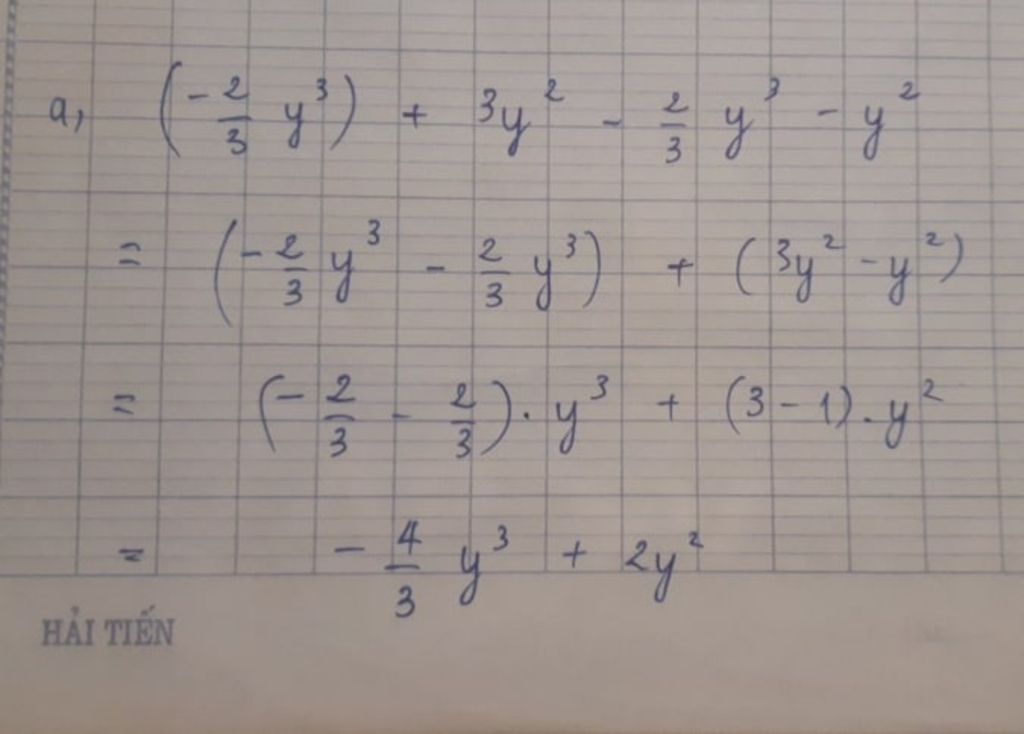 a, (-2/3 y³) + 3y² - 2/3 y³ - y²
= (-2/3 y³ - 2/3 y³) + (3y² - y²)
= (-2/3 - 2/3) . y³ + (3 - 1) . y²
= -4/3 y³ + 2y²
HẢI TIẾN